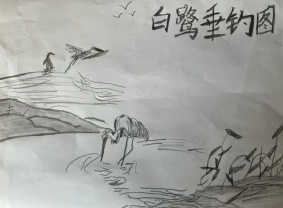 白鹭垂钓图